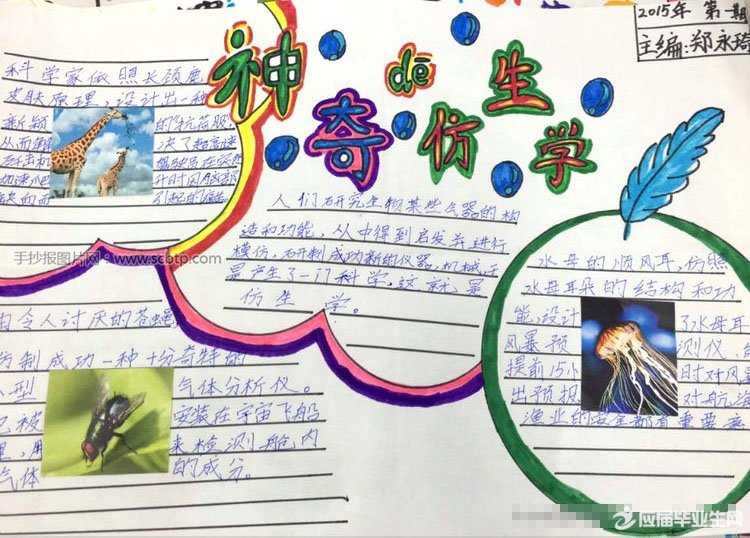 2015年 第一期
主编:郑永琦
神奇dē仿生学
科学家依照长颈鹿
皮肤原理,设计出一种
新颖的"抗荷服"
从而解决了超高速
歼击机驾驶员在突然
加速爬升时因脑部
缺血而引起的痛苦
手抄报图片网:www.scbtp.com
人们研究生物某些气器的构
造和功能,从中得到启发并进行
模仿,研制成功新的仪器,机械,于
是产生了一门科学,这就是
仿生学。
令人讨厌的苍蝇
仿制成功一种十分奇特的
小型气体分析仪。
已被安装在宇宙飞船
里,用来检测船内
气体的成分。
水母的顺风耳,仿照
水母耳朵的结构和功
能,设计了水母耳
风暴预测仪,能
提前15小时对风暴
出预报对航海
渔业的安全都有重要意
应届毕业生网